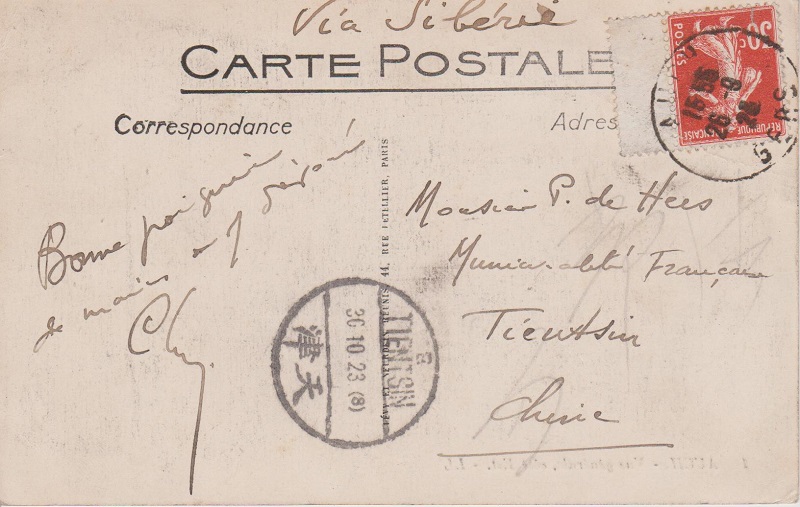 Via Sibérie
CARTE POSTALE
Correspondance
Adres
30c
POSTES
RÉPUBLIQUE FRANÇAISE
AUCH
GERS
Bonne poignée
de mains
Monsieur P. de Hees
Municipalité Française
Tientsin
Chine
LÉVY ET NEURDEIN RÉUNIS, 44, RUE LETELLIER, PARIS
TIENTSIN
30 10 23 (8)
津天